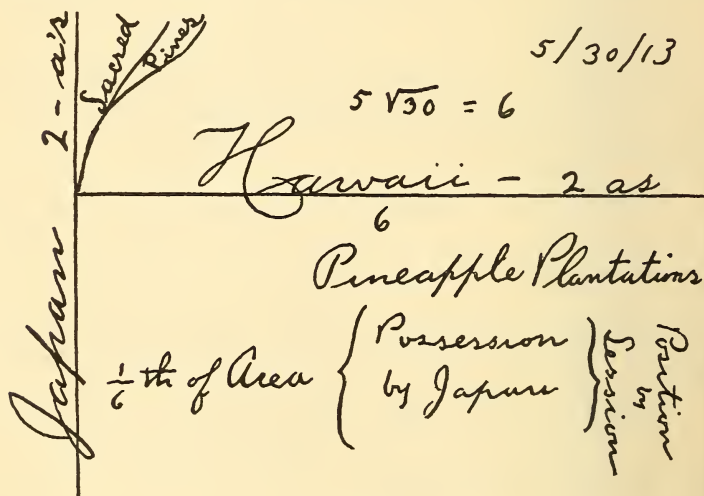 5/30/13
2-a's
Sacred
Pines
5 √30 = 6
Hawaii - 2 as
6
Pineapple Plantations
Japan
1/6 th of Area { Possession
by Japan }
Position
by
Session